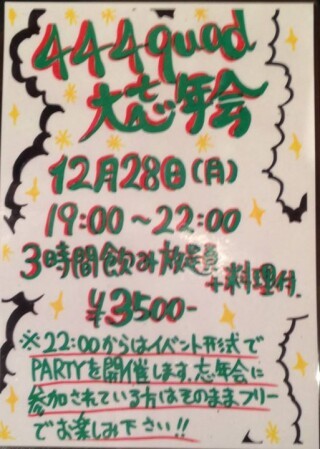 444quad
大忘年会
12月28日(月)
19:00~22:00
3時間飲み放題
+料理付.
¥3500-
※22:00からはイベント形式で
PARTYを開催します。忘年会に
参加されている方はそのままフリー
でお楽しみ下さい!!